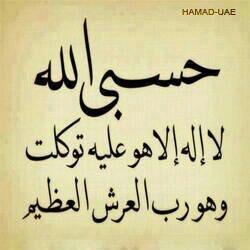 HAMAD-UAE
حسبي الله
لا إله إلا هو عليه توكلت
وهو رب العرش العظيم